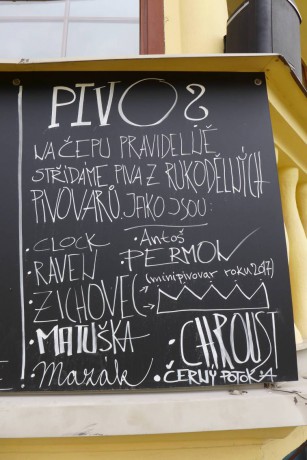 PIVO?
NA ČEPU PRAVIDELNĚ
STŘÍDÁME PIVA Z RUKODĚLNÝCH
PIVOVARŮ, JAKO JSOU:
· CLOCK
· RAVEN
· ZICHOVEC
· MATUŠKA
· Mazák
· Antoš
· PERMON
(minipivovar roku 2017)
· CHROUST
· ČERNÝ POTOK A